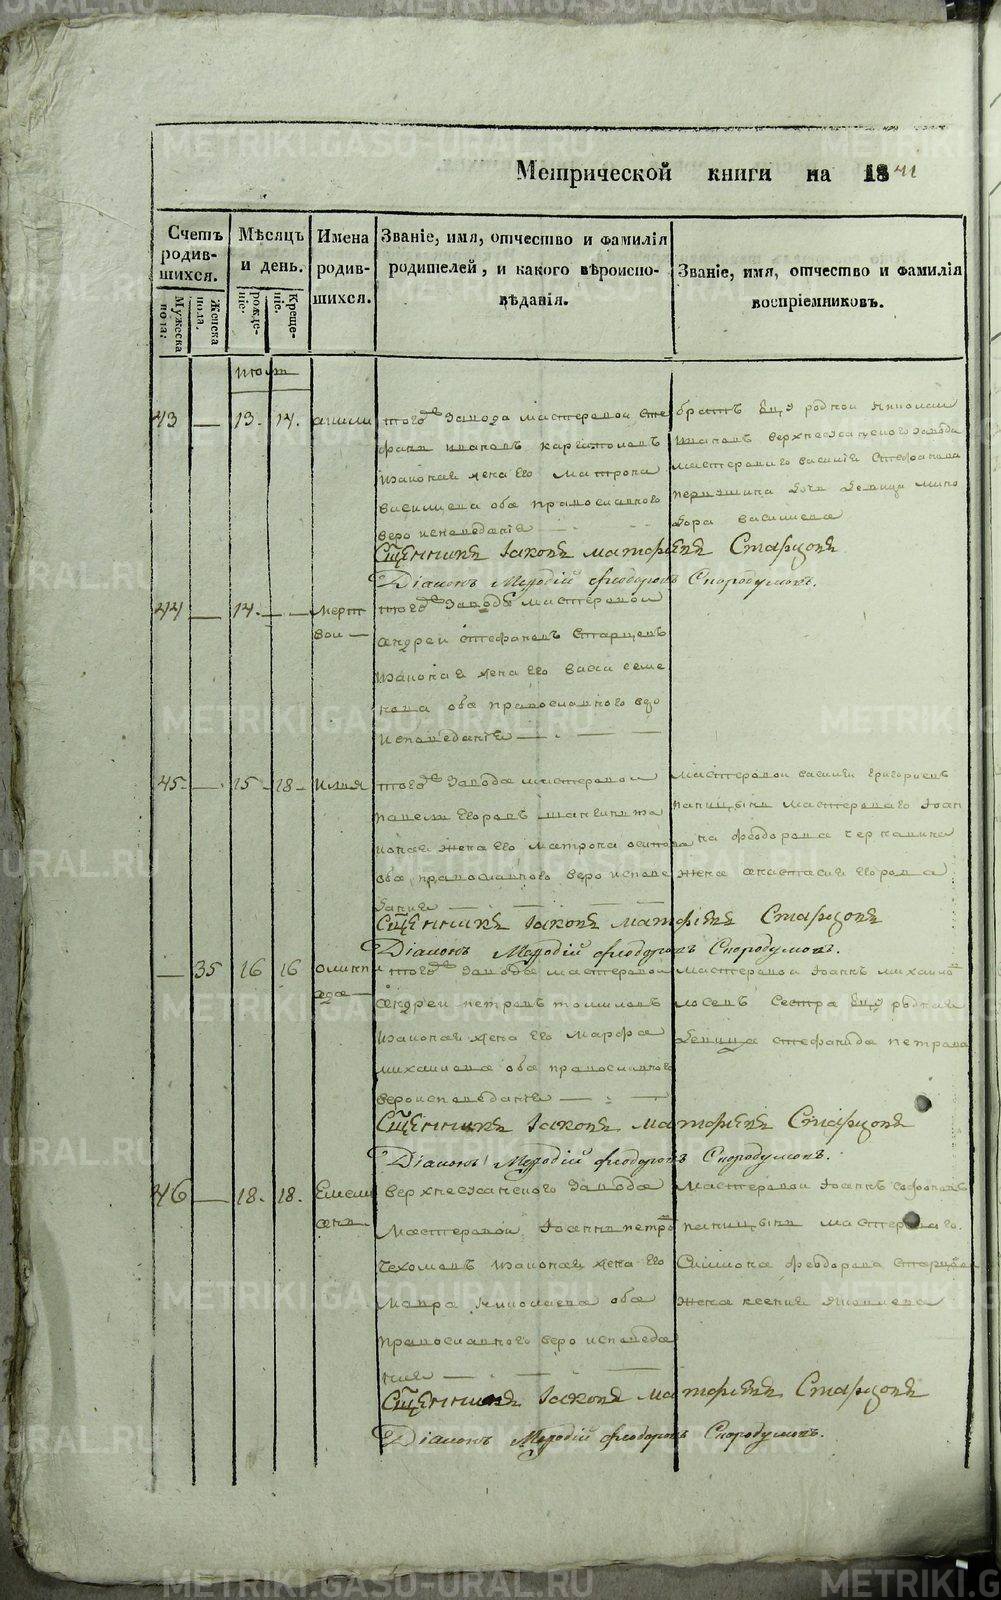 Метрической книги на 1841
Счетъ родив-шихся.
Мужеска пола.
Женска пола.
Мѣсяцъ и день.
рожде-ніе.
Креще-ніе.
Имена родив-шихся.
Званіе, имя, отчество и фамилія
родителей, и какого вѣроиспо-
вѣданія.
Званіе, имя, отчество и фамилія
воспріемниковъ.
43 — 13. 14.
того завода мастеровои Сте
фанъ ивановъ
законая жена его матрона
василиева оба православного
вероисповеданіе
братъ его родной николаи
ивановъ верхнесанского завода
мастерового василія Стефанова
дочь девица
василиева
Священникъ Іаковъ матфѣевъ Старцовъ
Діаконъ Меѳодій Ѳеодоровъ Скородумовъ.
44 — 14. — —
мерт
вои —
того завода мастеровои
андреи стефановъ старцевъ
законая жена его васа семе
нова оба православного веро
исповеданіе
45 — 15 18 Илия
того завода мастеровои
павелъ Егоровъ
жена его матрона осипова
оба православного веро испове
дание
мастеровои василеи григориевъ
паницынъ мастерового Іоан
на феодорова
жена анастасия егорова
Священникъ Іаковъ Матфѣевъ Старцовъ
Діаконъ Меѳодій Ѳеодоровъ Скородумовъ.
— 35 16 16 олимпи
ада —
того завода мастеровои
андреи петровъ томиловъ
законая жена его Марфа
михаилева оба православного
вероисповеданіе
мастеровои Іоанъ михаило
лосевъ сестра его родная
девица стефанида петрова
Священникъ Іаковъ матфѣевъ Старцовъ
Діаконъ Меѳодій Ѳеодоровъ Скородумовъ.
46 — 18. 18. Емели
анъ
верхнесанского завода
Мастеровои Іоаннъ петро
законая жена его
Мавра николаева оба
православного веро исповеда
ние
мастеровои Іоанъ софоновъ
паницынъ мастерового.
Симиона феодорова старцова
жена ксения
Священникъ Іаковъ матфѣевъ Старцовъ
Діаконъ Меѳодій Ѳеодоровъ Скородумовъ.
METRIKI.GASO-URAL.RU